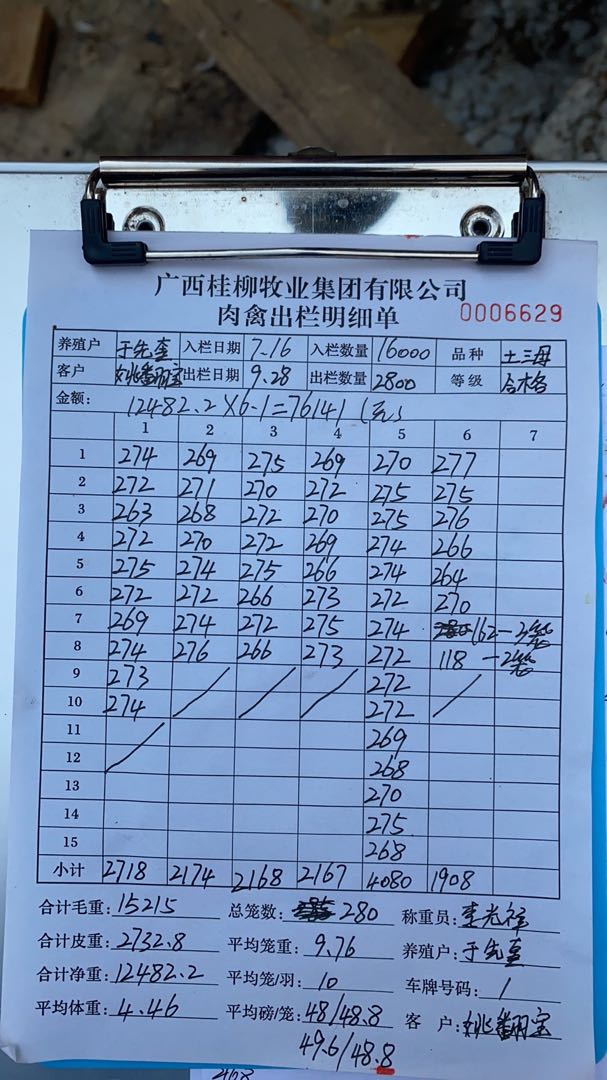 广西桂柳牧业集团有限公司
肉禽出栏明细单 0006629
养殖户 于先奎 入栏日期 7.16 入栏数量 16000 品种 土三母
客户 姚翻宝 出栏日期 9.28 出栏数量 2800 等级 合格
金额: 12482.2×6.1=76141(元)
1 2 3 4 5 6 7
1 274 269 275 269 270 277
2 272 271 270 272 275 275
3 263 268 272 270 275 276
4 272 270 272 269 274 266
5 275 274 275 266 274 264
6 272 272 266 273 272 270
7 269 274 272 275 274 162-3笼
8 274 276 266 273 272 118-2笼
9 273 272
10 274 272
11 269
12 268
13 270
14 275
15 268
小计 2718 2174 2168 2167 4080 1908
合计毛重: 15215 总笼数: 280 称重员: 李光祥
合计皮重: 2732.8 平均笼重: 9.76 养殖户: 于先奎
合计净重: 12482.2 平均笼/羽: 10 车牌号码: 1
平均体重: 4.46 平均磅/笼: 48/48.8 客户: 姚翻宝
49.6/48.8